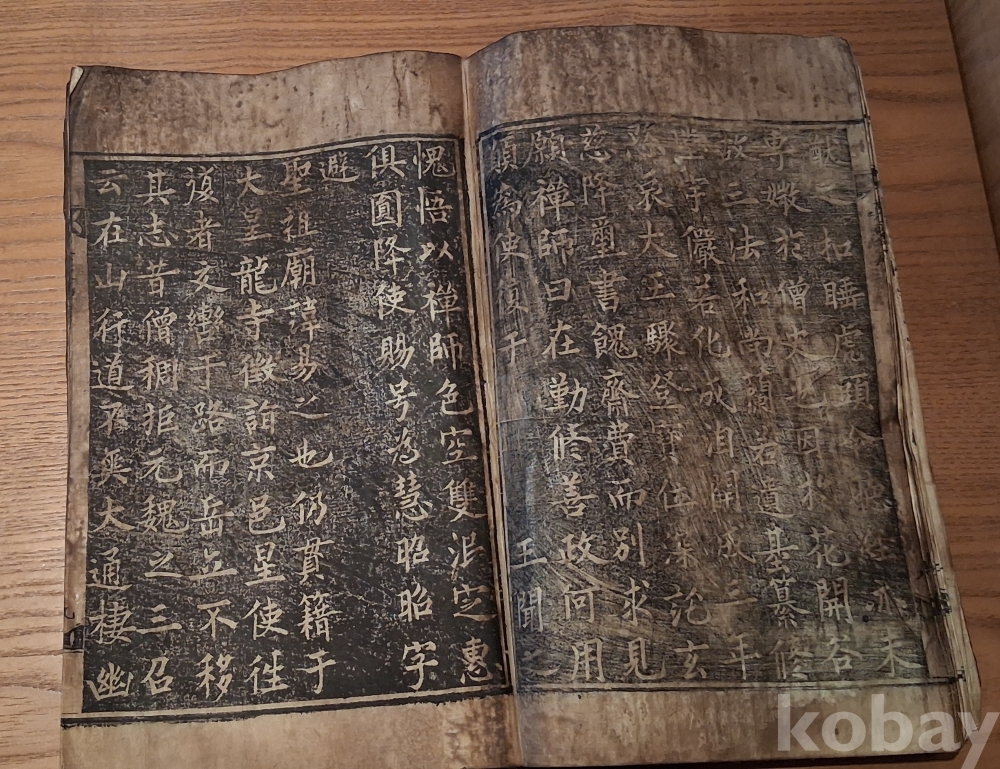 猷之扣睡虎頭令聽經亦未
專媺於僧史也因於花開谷
故三法和尚蘭若遺基纂修
堂宇儼若化成洎開成三年
愍哀大王驟登寶位深託玄
慈降璽書餽齋費而別求見
願禪師曰在勤修善政何用
願為使復于 王聞之
愧悟以禪師色空雙泯定惠
俱圓降使賜号為慧昭昭字
避
聖祖廟諱易之也仍貫籍于
大皇龍寺徵詣京邑星使往
復者交轡于路而岳立不移
其志昔僧稠拒元魏之三召
云在山行道不爽大通棲幽
kobay